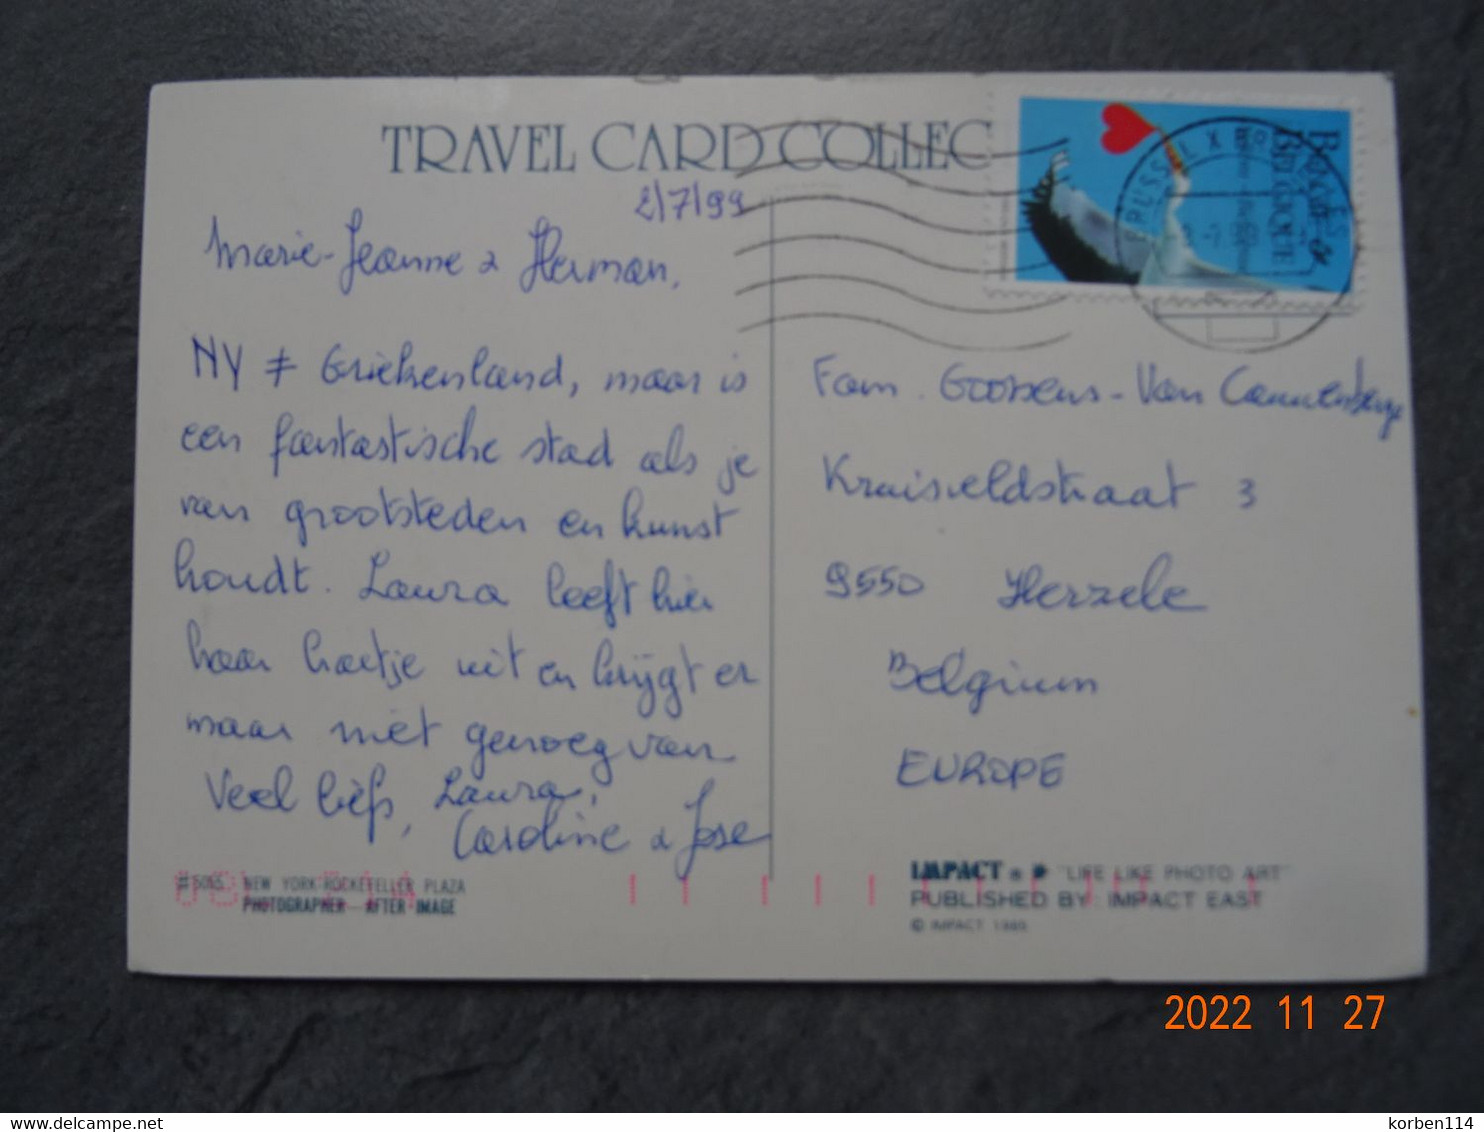 TRAVEL CARD COLLEC
2/7/99
Marie-Jeanne & Herman,
NY ≠ Griekenland, maar is
een fantastische stad als je
van grootsteden en kunst
houdt. Laura leeft hier
haar hartje uit en krijgt er
maar niet genoeg van
Veel liefs, Laura,
Caroline & Jose
BELGIQUE
Fam. Goossens-Van Cauwenberge
Kruisveldstraat 3
9550 Herzele
Belgium
EUROPE
#5065 NEW YORK-ROCKEFELLER PLAZA
PHOTOGRAPHER—AFTER IMAGE
IMPACT ® "LIFE LIKE PHOTO ART"
PUBLISHED BY IMPACT EAST
© IMPACT 1989
2022 11 27
delcampe.net
korben114